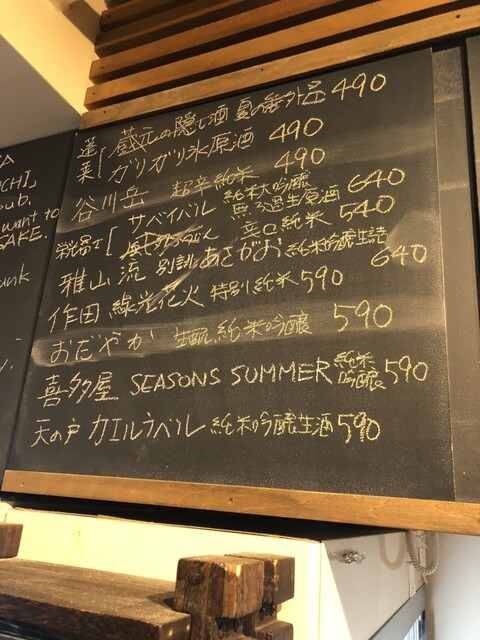 蓬莱 蔵元の隠し酒 夏の番外品 490
ガリガリ氷原酒 490
谷川岳 超辛純米 490
サバイバル 純米大吟醸 黒ろ過生原酒 640
辛口純米 540
雅山流 別誂 あさがお 純米吟醸生詰 640
作田 線光花火 特別純米 590
おだやか 生酛 純米吟醸 590
喜多屋 SEASONS SUMMER 純米吟醸 590
天の戸 カエルラベル 純米吟醸生酒 590
A
OCHI,
pub.
want to
SAKE.
unk